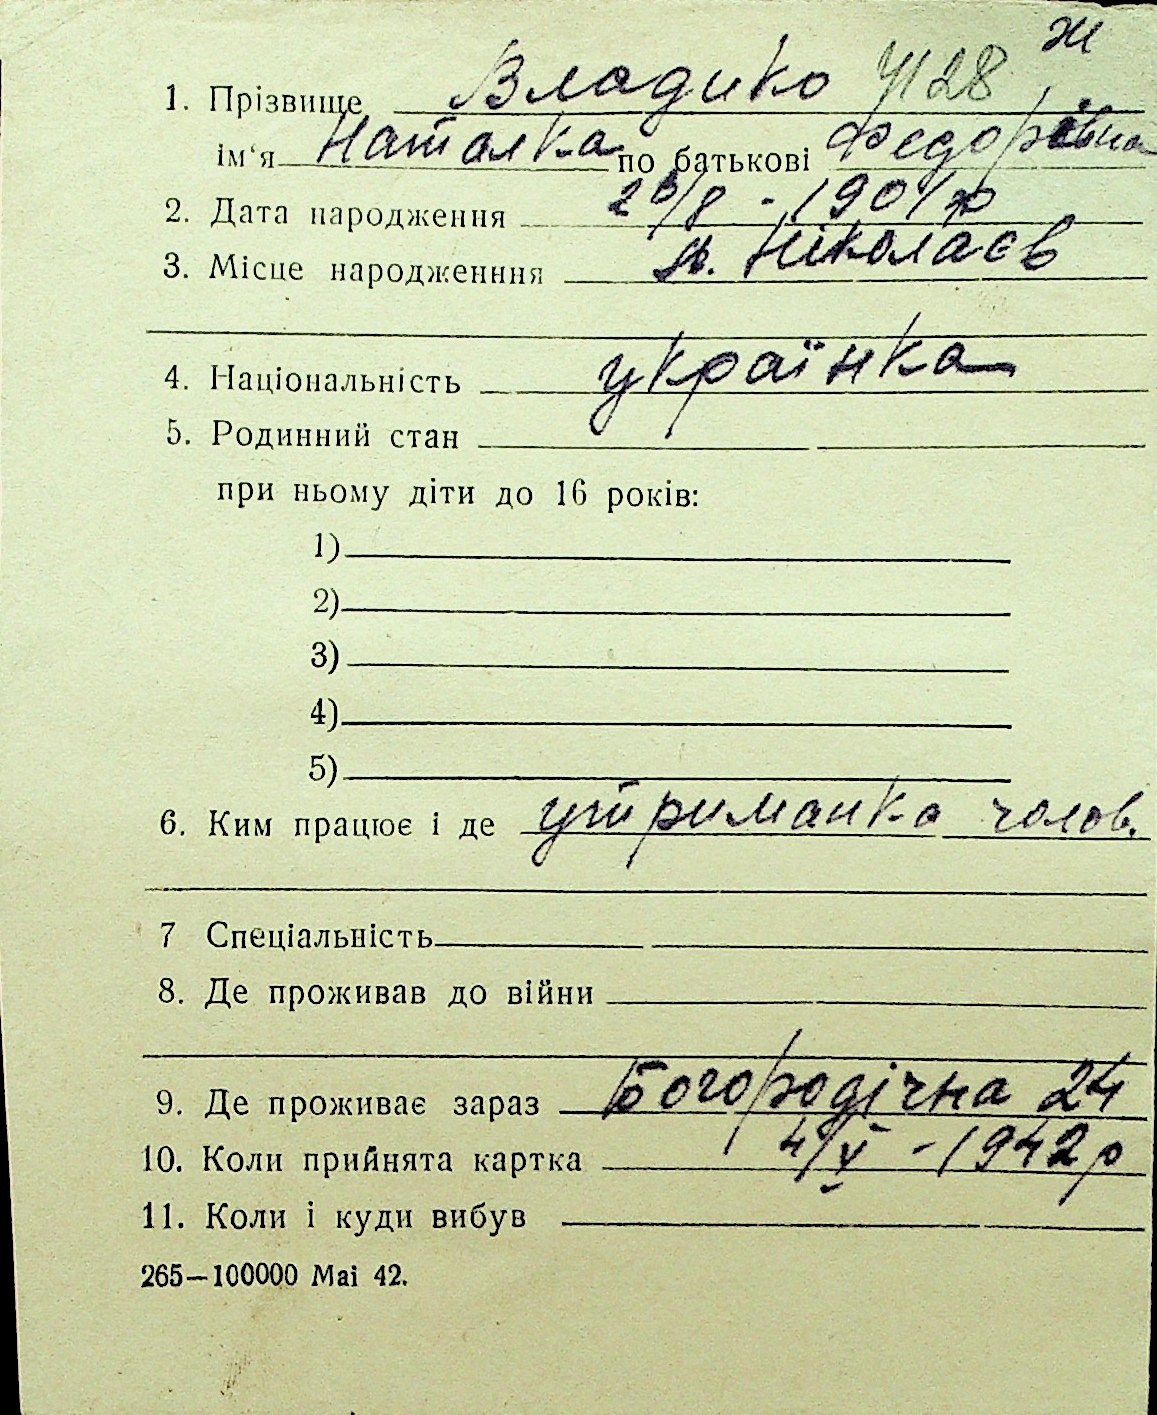 ж
1. Прізвище Владико 4128
ім'я Наталка по батькові Федорівна
2. Дата народження /8 - 1901 р
3. Місце народженння м. Ніколаєв
4. Національність українка
5. Родинний стан
при ньому діти до 16 років:
1)
2)
3)
4)
5)
6. Ким працює і де утриманка чолов.
7 Спеціальність
8. Де проживав до війни
9. Де проживає зараз Богородічна 24
10. Коли прийнята картка 4/V - 1942 р
11. Коли і куди вибув
265—100000 Mai 42.